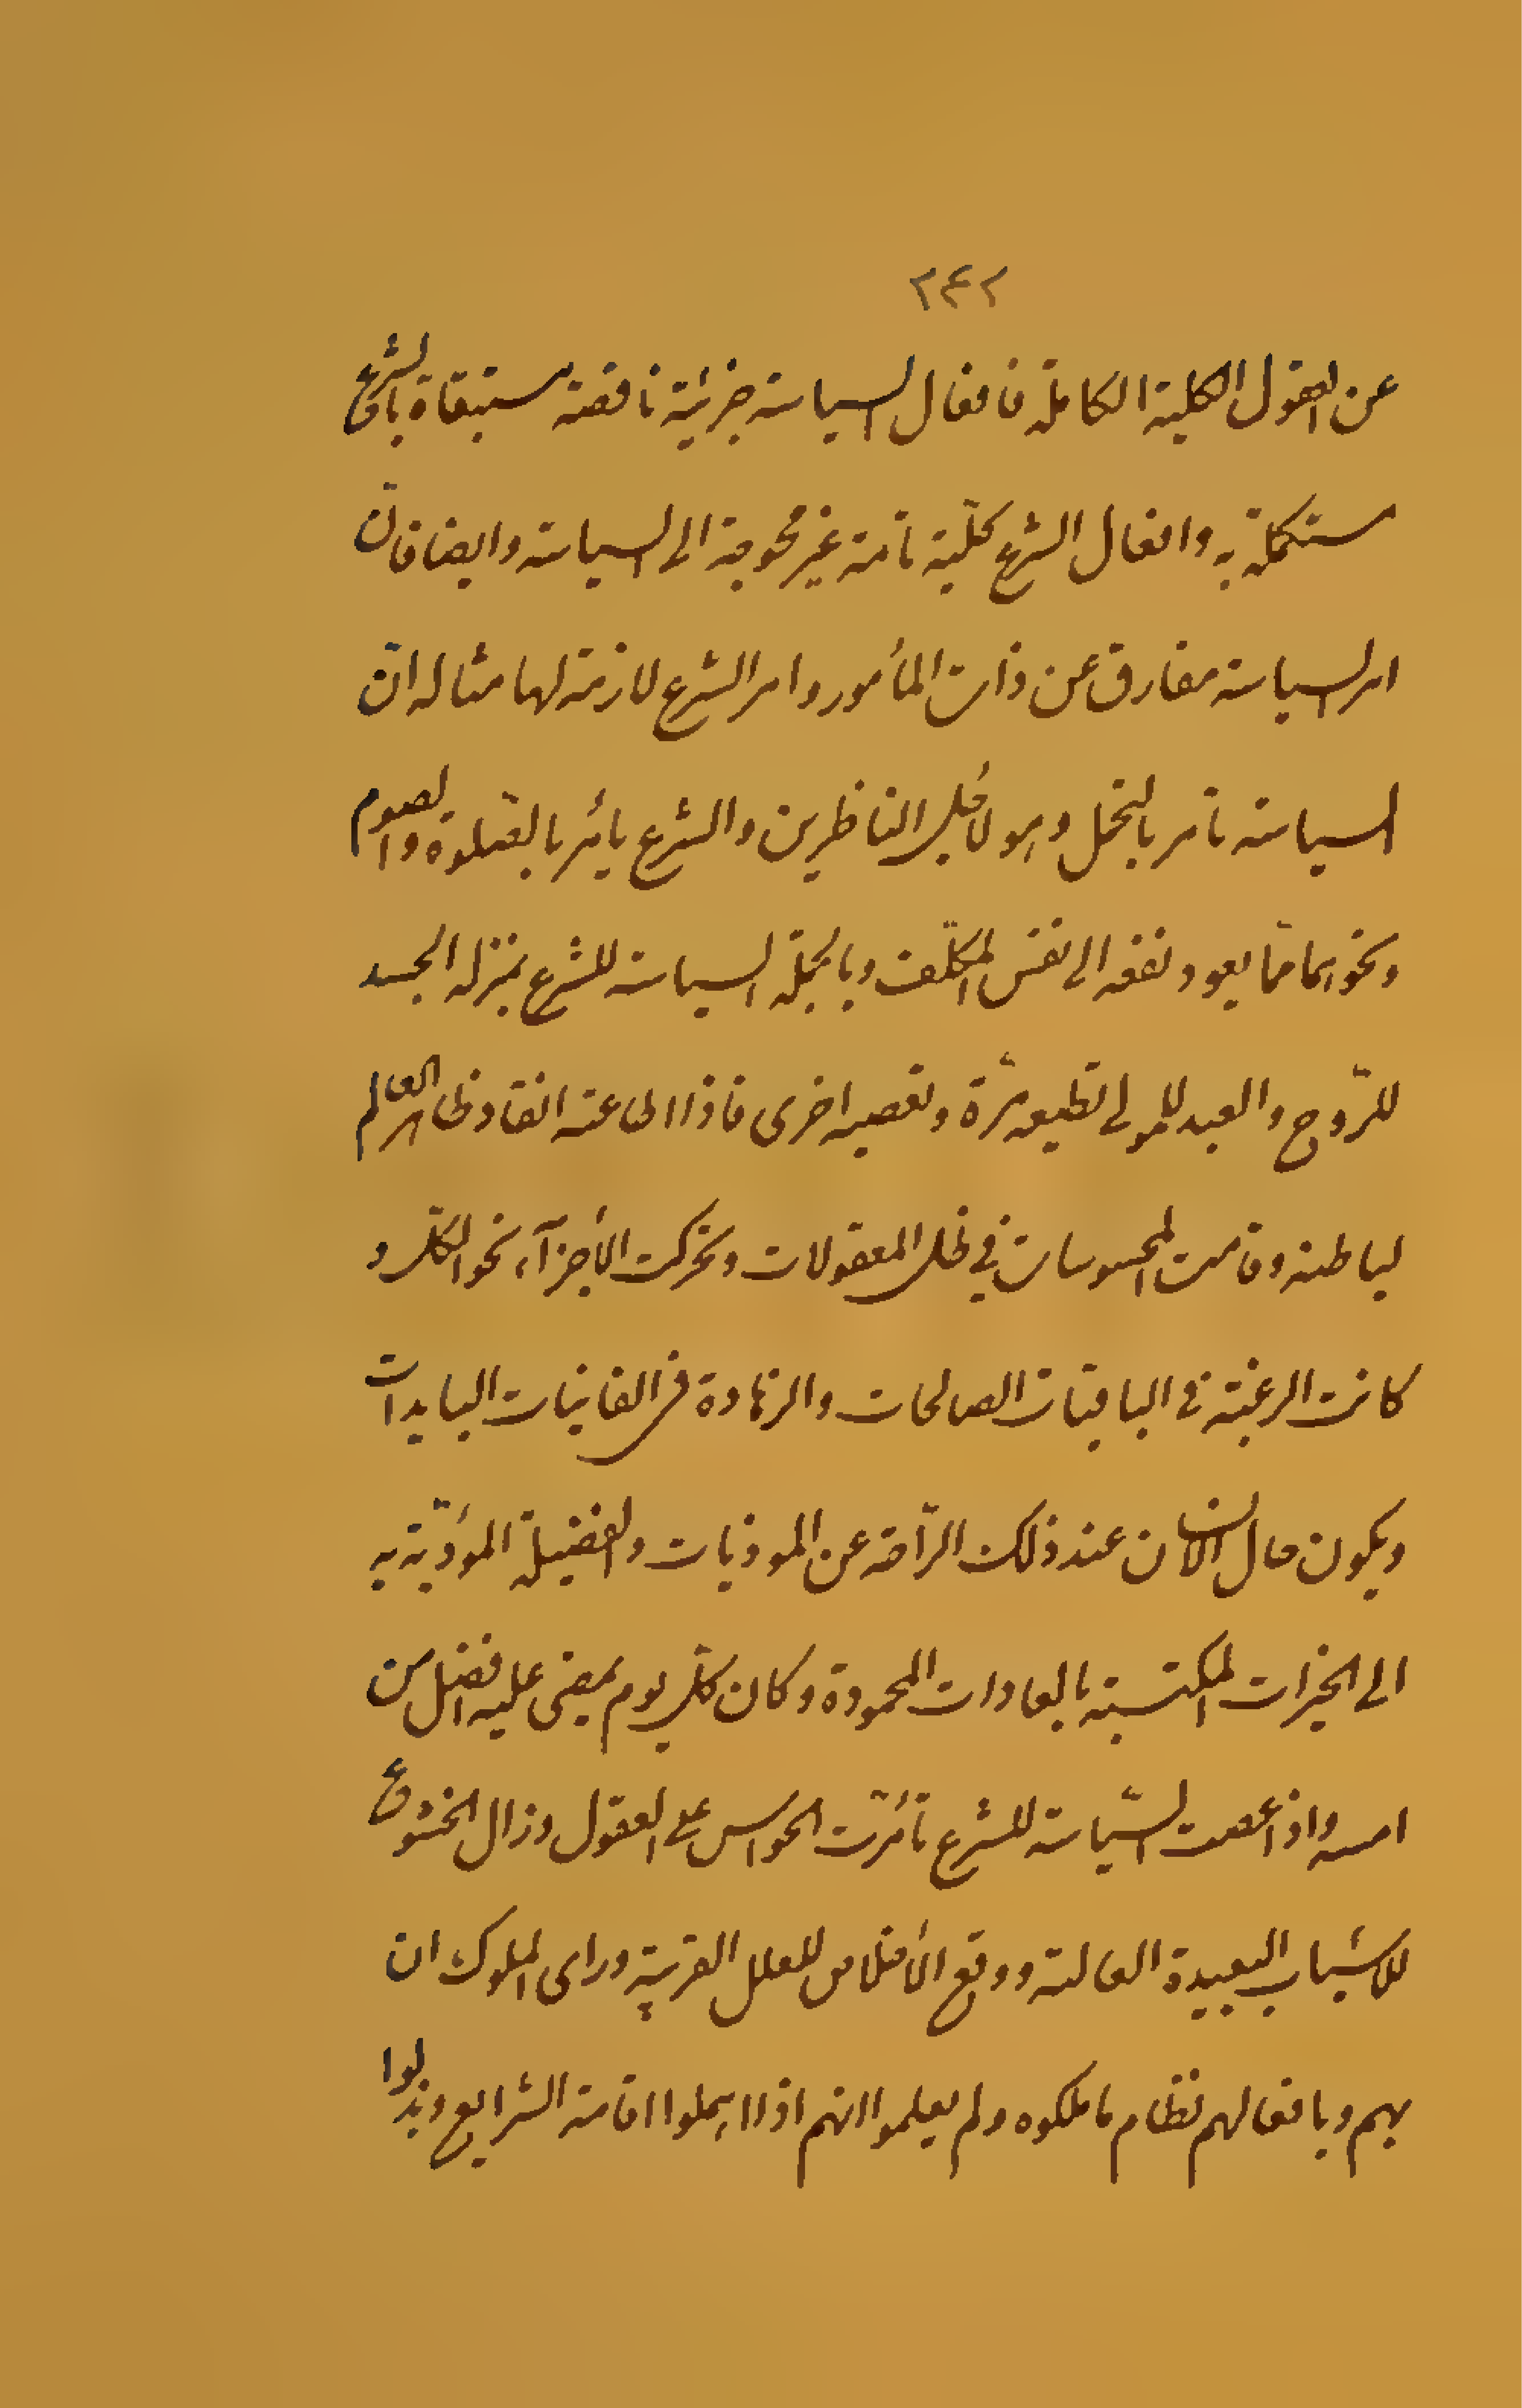 ٢٤٢
عن العقول الكلية الكاملة فافعال السياسة جزئية ناقصة مستبقاة بالشرع
مستكملة به وافعال الشرع كلّية تامة غير محوجة الى السياسة وايضا فانّ
امر السياسة مفارق عن ذات المأمور وامر الشرع لازمة لها مثاله انّ
السياسة تامر بالتجمل وهو لأجل الناظرين والشرع يأمر بالصّلوة والصوم
ونحوهما ممّا يعود نفعه الى نفس المكلّف وبالجملة السياسة للشرع بمنزله الجسد
للرّوح والعبد للمولى تطيعه مرّة وتعصيه اخرى فاذا اطاعته انقاد ظاهر العالم
لباطنه وقامت المحسوسات في ظل المعقولات وتحركت الأجزآء نحو الكلّ و
كانت الرغبة في الباقيات الصالحات والزهادة في الفانيات البايدات
ويكون حال الانسان عند ذلك الرّاحة عن الموذيات والفضيلة المؤدّية به
الى الخيرات المكتسبة بالعادات المحمودة وكان كلّ يوم يمضى عليه افضل من
امسه واذا عصت السّياسة للشرع تأمّرت الحواس على العقول وزال الخشوع
للاسباب البعيدة العالية ووقع الأخلاص للعلل القريبة وراى الملوك ان
بهم وبافعالهم نظام ما ملكوه ولم يعلموا انهم اذا اهملوا اقامة الشرايع وبذلوا